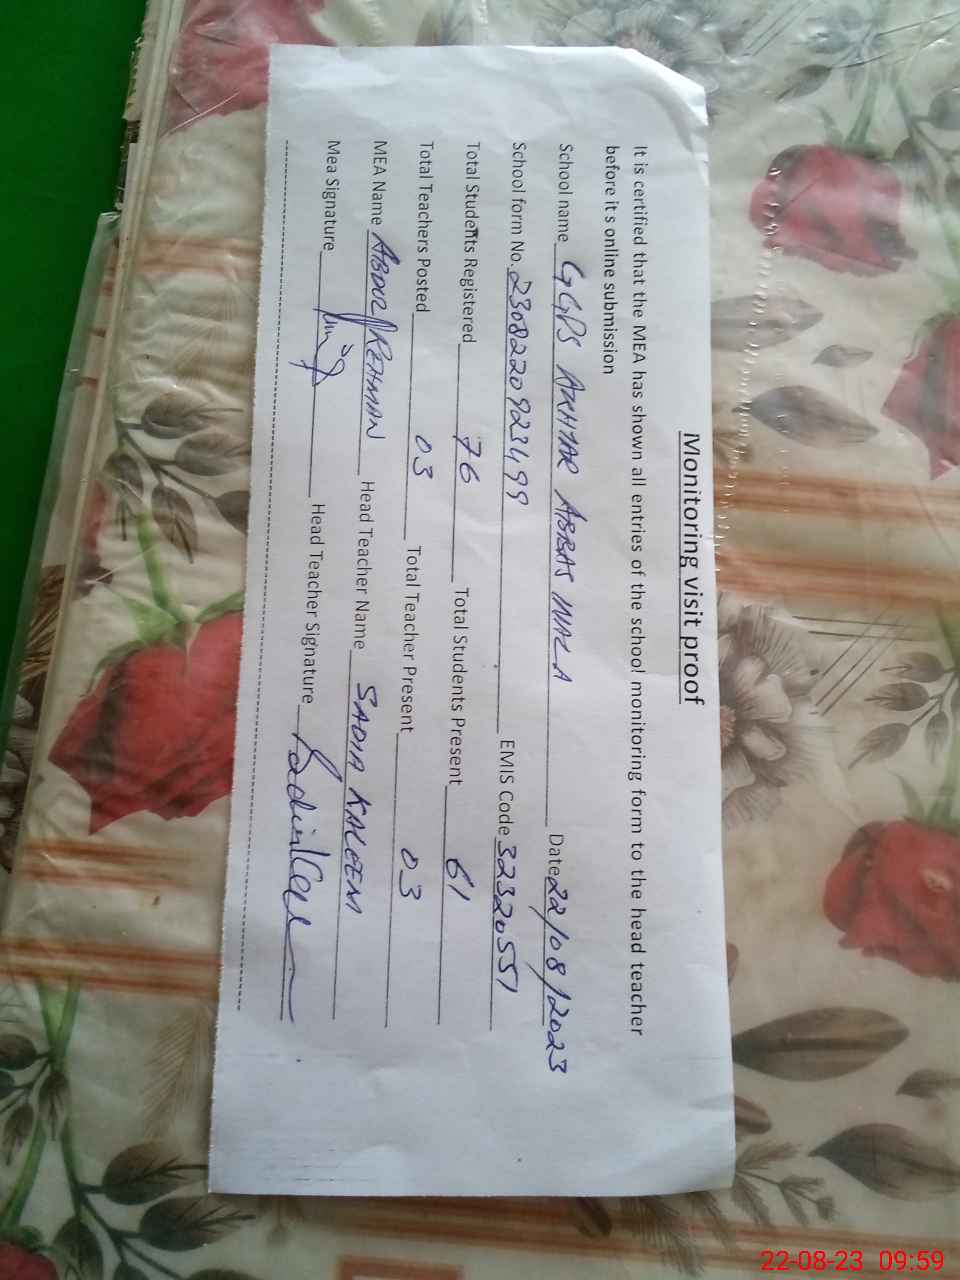 Monitoring visit proof
It is certified that the MEA has shown all entries of the school monitoring form to the head teacher
before it s online submission
School name GGPS AKHTAR ABBAS WALA Date 22/08/2023
School form No. 230822092923499 EMIS Code 32320551
Total Students Registered 76 Total Students Present 61
Total Teachers Posted 03 Total Teacher Present 03
MEA Name ABDUL REHMAN Head Teacher Name SADIA KALEEM
Mea Signature Head Teacher Signature
22-08-23 09:59